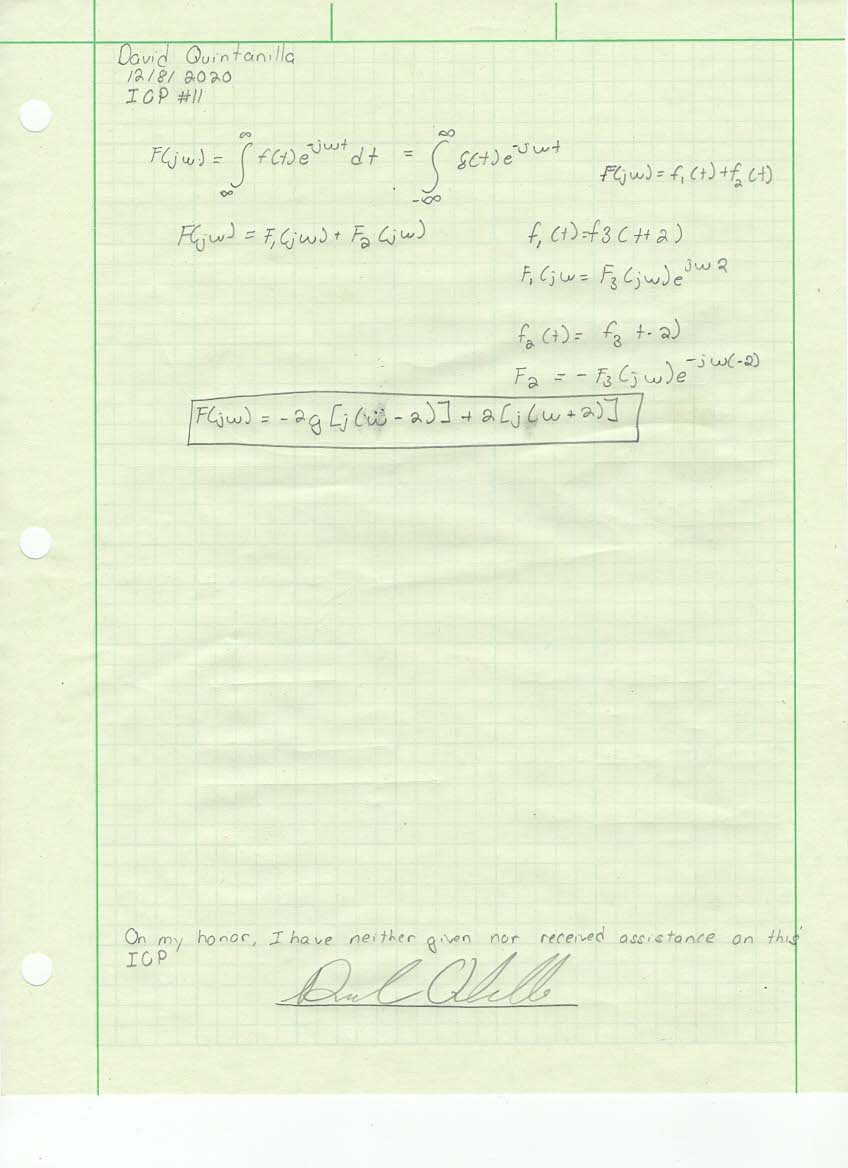 David Quintanilla
12/8/2020
ICP #11
F(jω) = ∫ ∞ ∞ f(t)e^-jωt dt = ∫ ∞ -∞ δ(t)e^-jωt
F(jω) = f₁(t)+f₂(t)
F(jω) = F₁(jω) + F₂(jω)
f₁(t)=f3(t+2)
F₁(jω = F₃(jω)e^jω2
f₂(t) = f₃ t-2)
F₂ = - F₃(jω)e^-jω(-2)
F(jω) = -2g[j(ω-2)] + 2[j(ω+2)]
On my honor, I have neither given nor received assistance on this
ICP